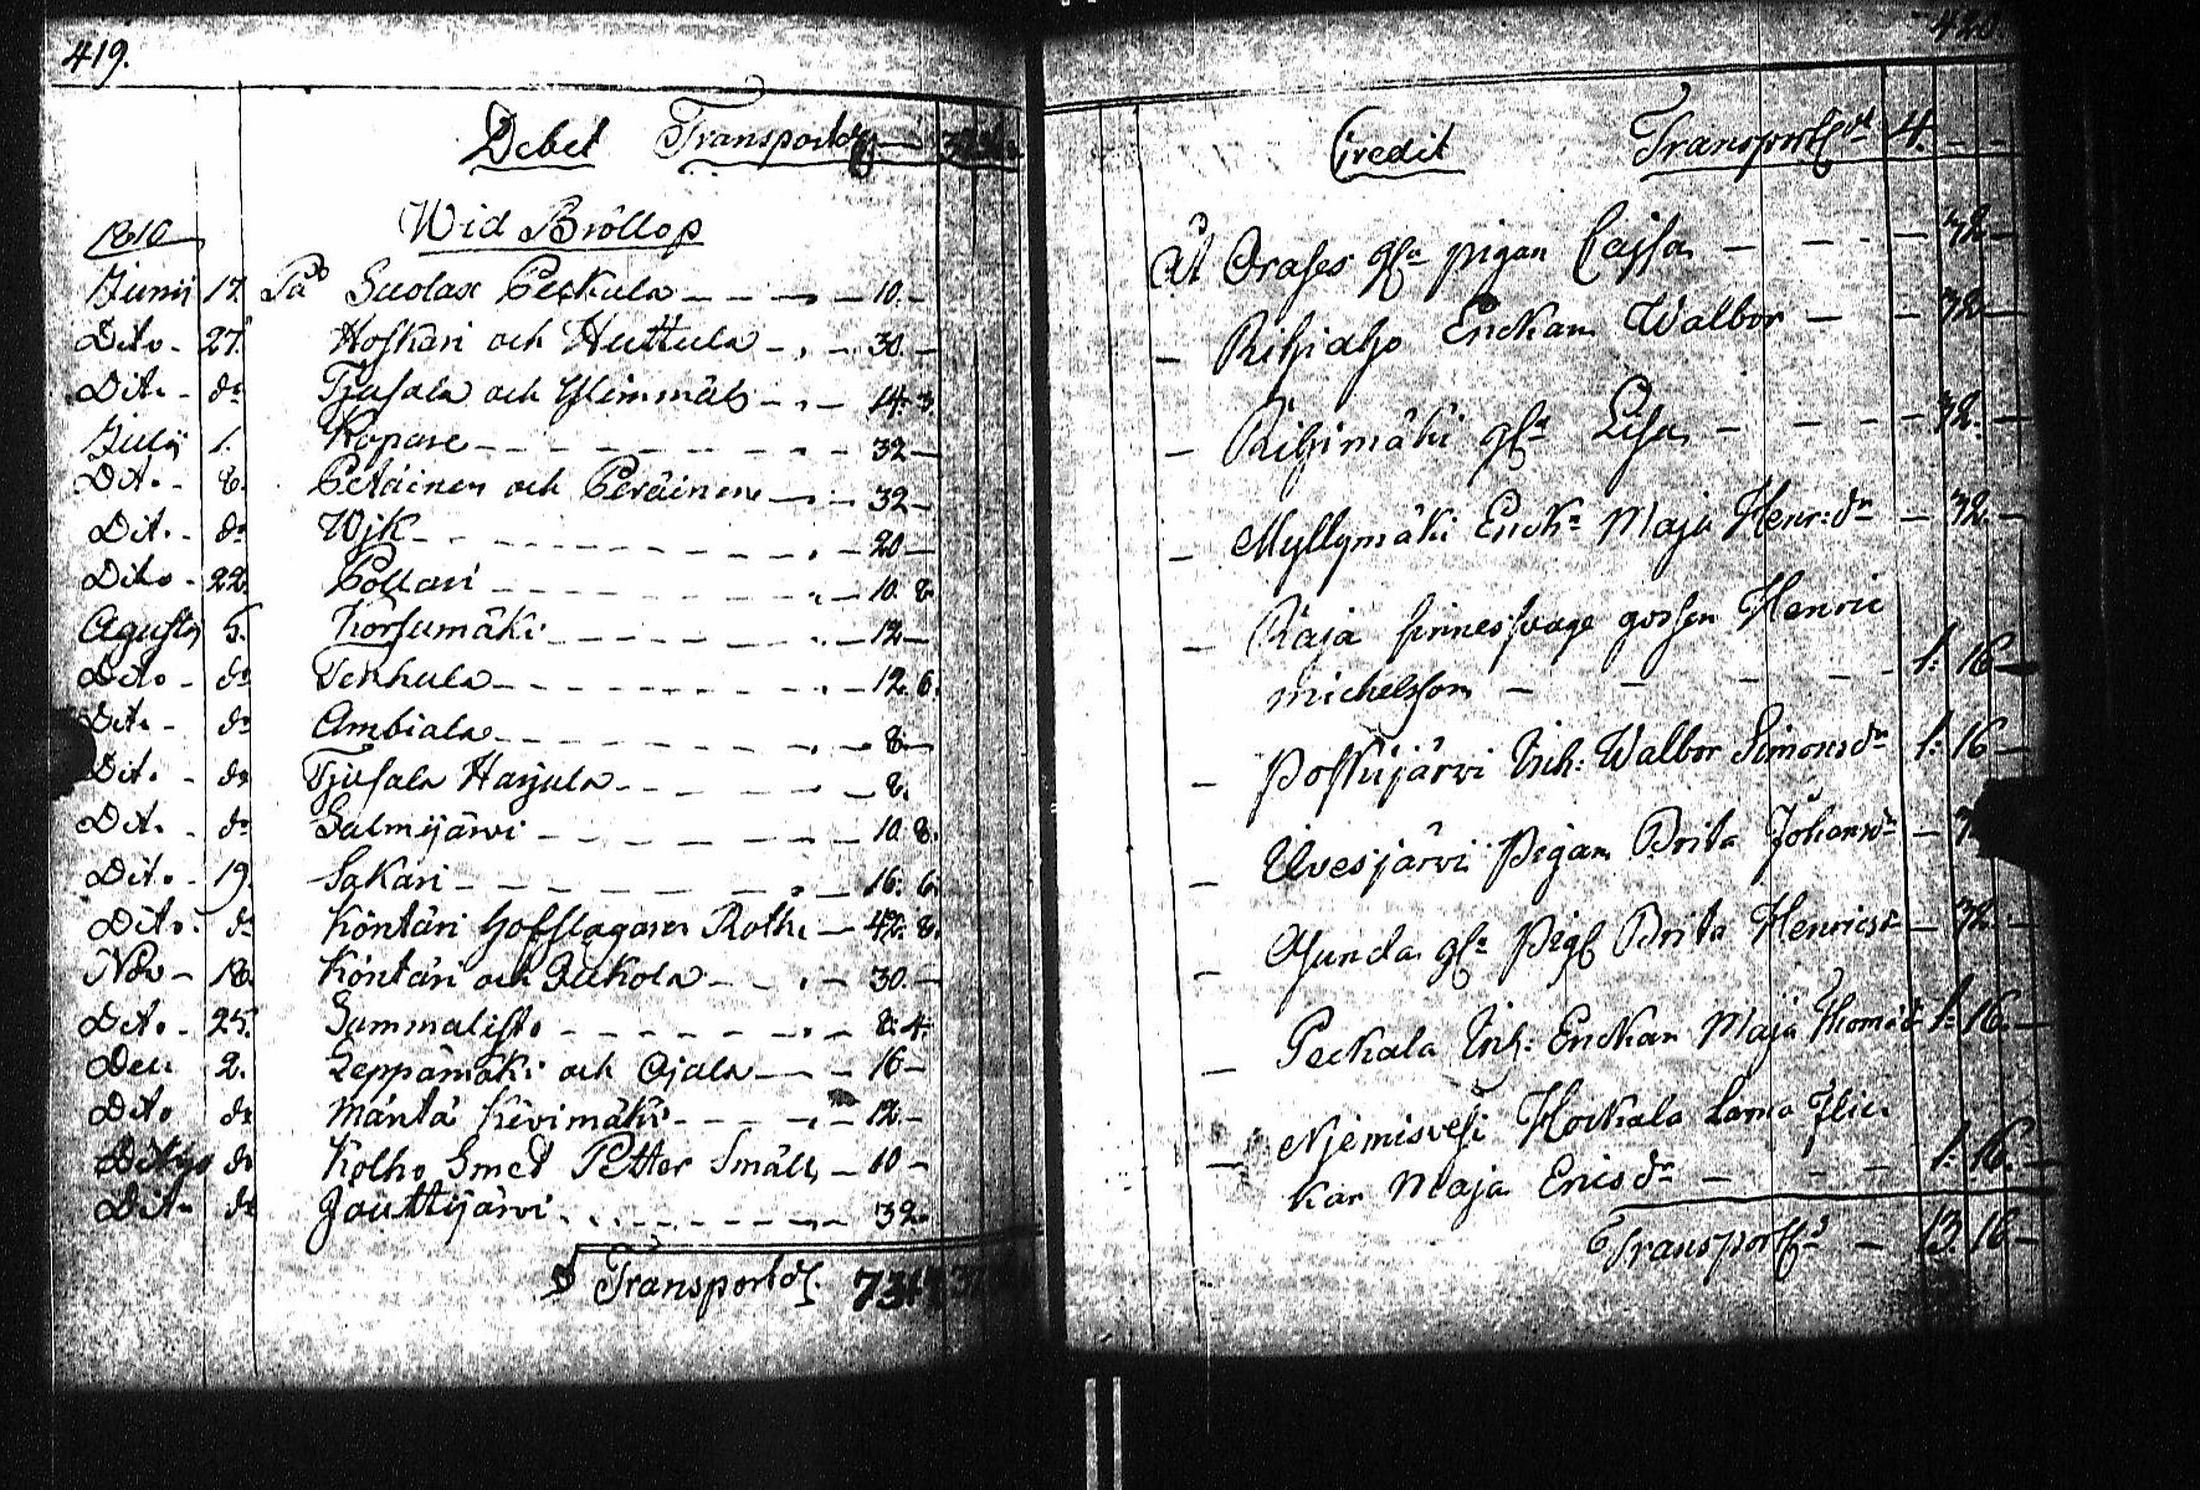 419.
Debet Transport
Wid Bröllop
1810
Junij 17. På Suolax Peckula - - - 10. -
Dito - 27. Hoskari och Huttula - . - 30. -
Dito - do Tjusala och - . - 14. 3.
Julij 1. Kopare - - - - 32 -
Dito - 8. Petäinen och Peräinen - - 32 -
Dito - do Wjk - - - - 20 -
Dito - 22. Pollari - - - - 10. 8.
Agusty 5. Körsumäki - - - - 12 -
Dito - do Tenhula - - - - 12. 6.
Dito - do Ambiala - - - - 8 -
Dito - do Tjusala Harjula - - - - 8.
Dito - do Salmijärvi - - - - 10. 8.
Dito - 19. Sakari - - - - 16. 6.
Dito - do Köntäri Hofslagaren Roth - 42. 8.
Nov - 18. Köntäri och Jukola - - . - 30. -
Dito - 25. Sammalisto - - - - 8. 4.
Dec 2. Leppämäki och Ojala - - 16 -
Dito do Mäntä Kivimäki - - - - 12 -
Dito do Kolho Smed Petter Smäll - 10 -
Dito do Jouttijärvi - - - - 32.
Transport
420.
Credit Transport 4. - -
Åt Orases gla pigan Cajsa - - - - 32 -
- Rihiaho Enckan Walbor - - 32 -
- Rihimäki gla Lisa - - - - 32. -
- Myllymäki Enck: Maja Henr: dr - 32. -
- Raja sinnessvage gossen Henric
Michelsson - - - - - 1: 16 -
- Poskijärvi Inh: Walbor Simonsdr 1: 16 -
- Ulvesjärvi Pigan Brita Johansdr -
- gla Pig Brita Henricsdr - 32. -
- Peckala Inh: Enckan Maja Thom: d 1: 16. -
- Niemisvesi Hockala Lama
kan Maja Ericsdr - - - 1: 16. -
Transport - 13. 16 -